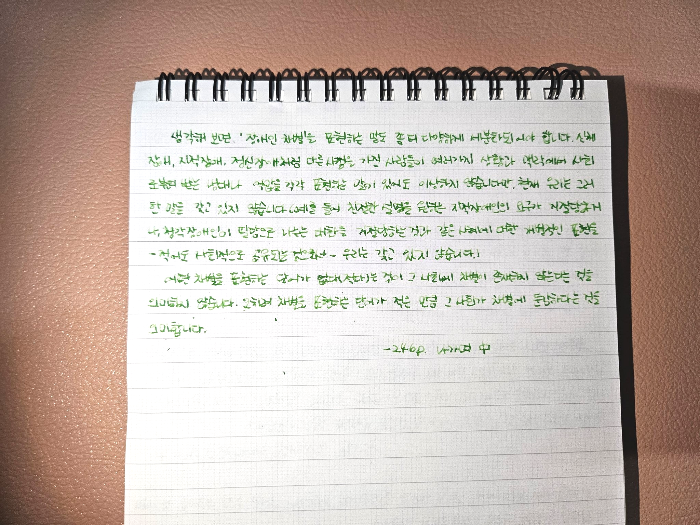 생각해 보면, '장애인 차별'을 표현하는 말도 좀 더 다양하게 세분화되어야 합니다. 신체
장애, 지적장애, 정신장애처럼 다른 사정을 가진 사람들이 여러가지 상황과 맥락에서 사회
받는 각각 표현하는 말이 있어도 이상하지 않습니다만, 현재 우리는 그러
한 말을 갖고 있지 않습니다. (예를 들어 친절한 설명을 원하는 지적장애인의 요구가 거절당하거
나, 청각장애인이 필담으로 나누는 대화를 거절당하는 것과 같은 사례에 대한 개별적인 표현을
-적어도 사회적으로 공유되는 - 우리는 갖고 있지 않습니다.)
어떤 차별을 표현하는 단어가 없다는 것이 그 사회에 차별이 존재하지 않는다는 것을
의미하지 않습니다. 오히려 차별을 표현하는 단어가 적은 만큼 그 사회가 차별에 둔감하다는 것을
의미합니다.
-246p. 中